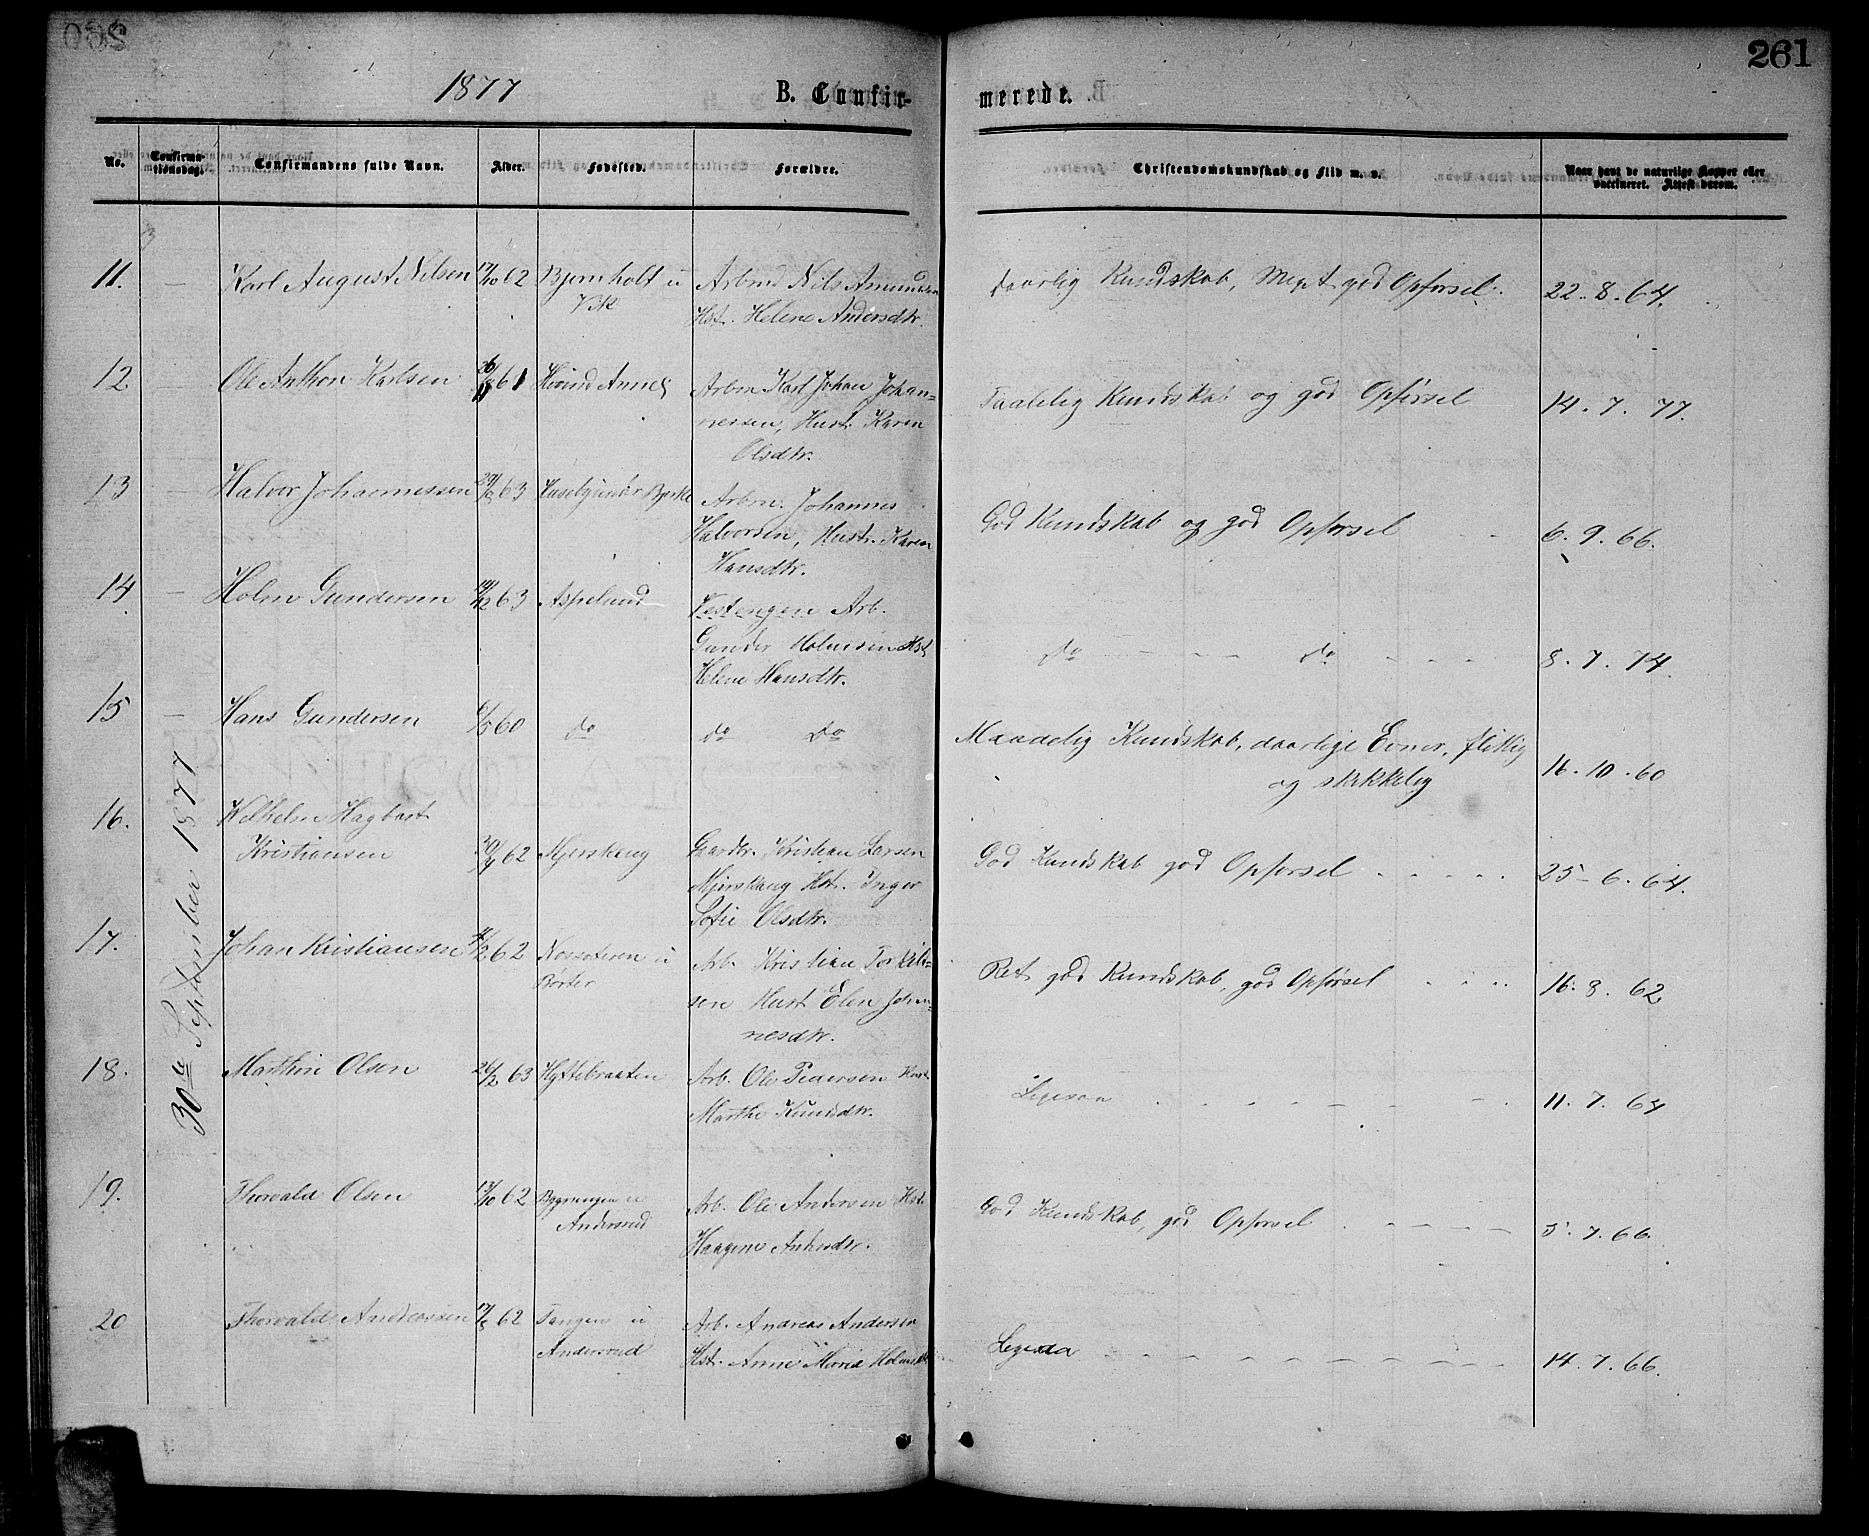 261
1877
B. Confir- merede.
No. Confirma-tionsdag. Confirmandens fulde Navn. Alder. Fødested. Forældre. Christendomskundskab og Flid m. v. Naar havt de naturlige Kopper eller vaccineret. Attest derom.
30te September 1877
11. – Karl August Nilsen 17/10 62 Bjørnholt u Arbmd Nils Amundsen Daarlig Kundskab, Meget god Opførsel. 22.8.64.
Vik Hst. Helene Andersdtr.
12 – Ole Anthon Karlsen 61 Arbm Karl Johan Johan- Taalelig Kundskab og god Opførsel 14.7.77.
nessen, Hust. Karen
Olsdtr.
13 – Halvor Johannessen 63 Bjerke Arbm. Johannes God Kundskab og god Opførsel 6.9.66.
Halvorsen, Hustr. Karen
Hansdtr.
14. – Holm Gundersen 63 Aspelund Vestengen Arb. do do 8.7.74.
Gunder Holmsen Hst
Helene Hansdtr.
15 – Hans Gundersen 60 do do do Maadelig Kundskab, daarlige Evner, flittig 16.10.60
og skikkelig
16. Vilhelm Hagbart
Kristiansen 62 Mjerskaug Gaardbr. Kristian Larsen God Kundskab god Opførsel 25-6.64.
Mjerskaug Hst. Inger
Sofie Olsdtr.
17. Johan Kristiansen 62 u Arb. Kristian Torkild- Ret god Kundskab, god Opførsel 16.8.62
Børter sen Hust Elen Johan-
nesdtr.
18. Marthin Olsen 26/2 63 Hyttebraaten Arb. Ole Pedersen Hust. Ligesaa 11.7.64
Marthe Knudsdtr.
19. Thorvald Olsen 62 u Arb. Ole Andersen Hst. God Kundskab, god Opførsel 5.7.66
Andersrud Haagine Andersdtr.
20 Thorvald Andreassen 62 Tangen u Arb. Andreas Andersen Ligesaa 14.7.66.
Andersrud Hst. Anne Maria Holmsdtr